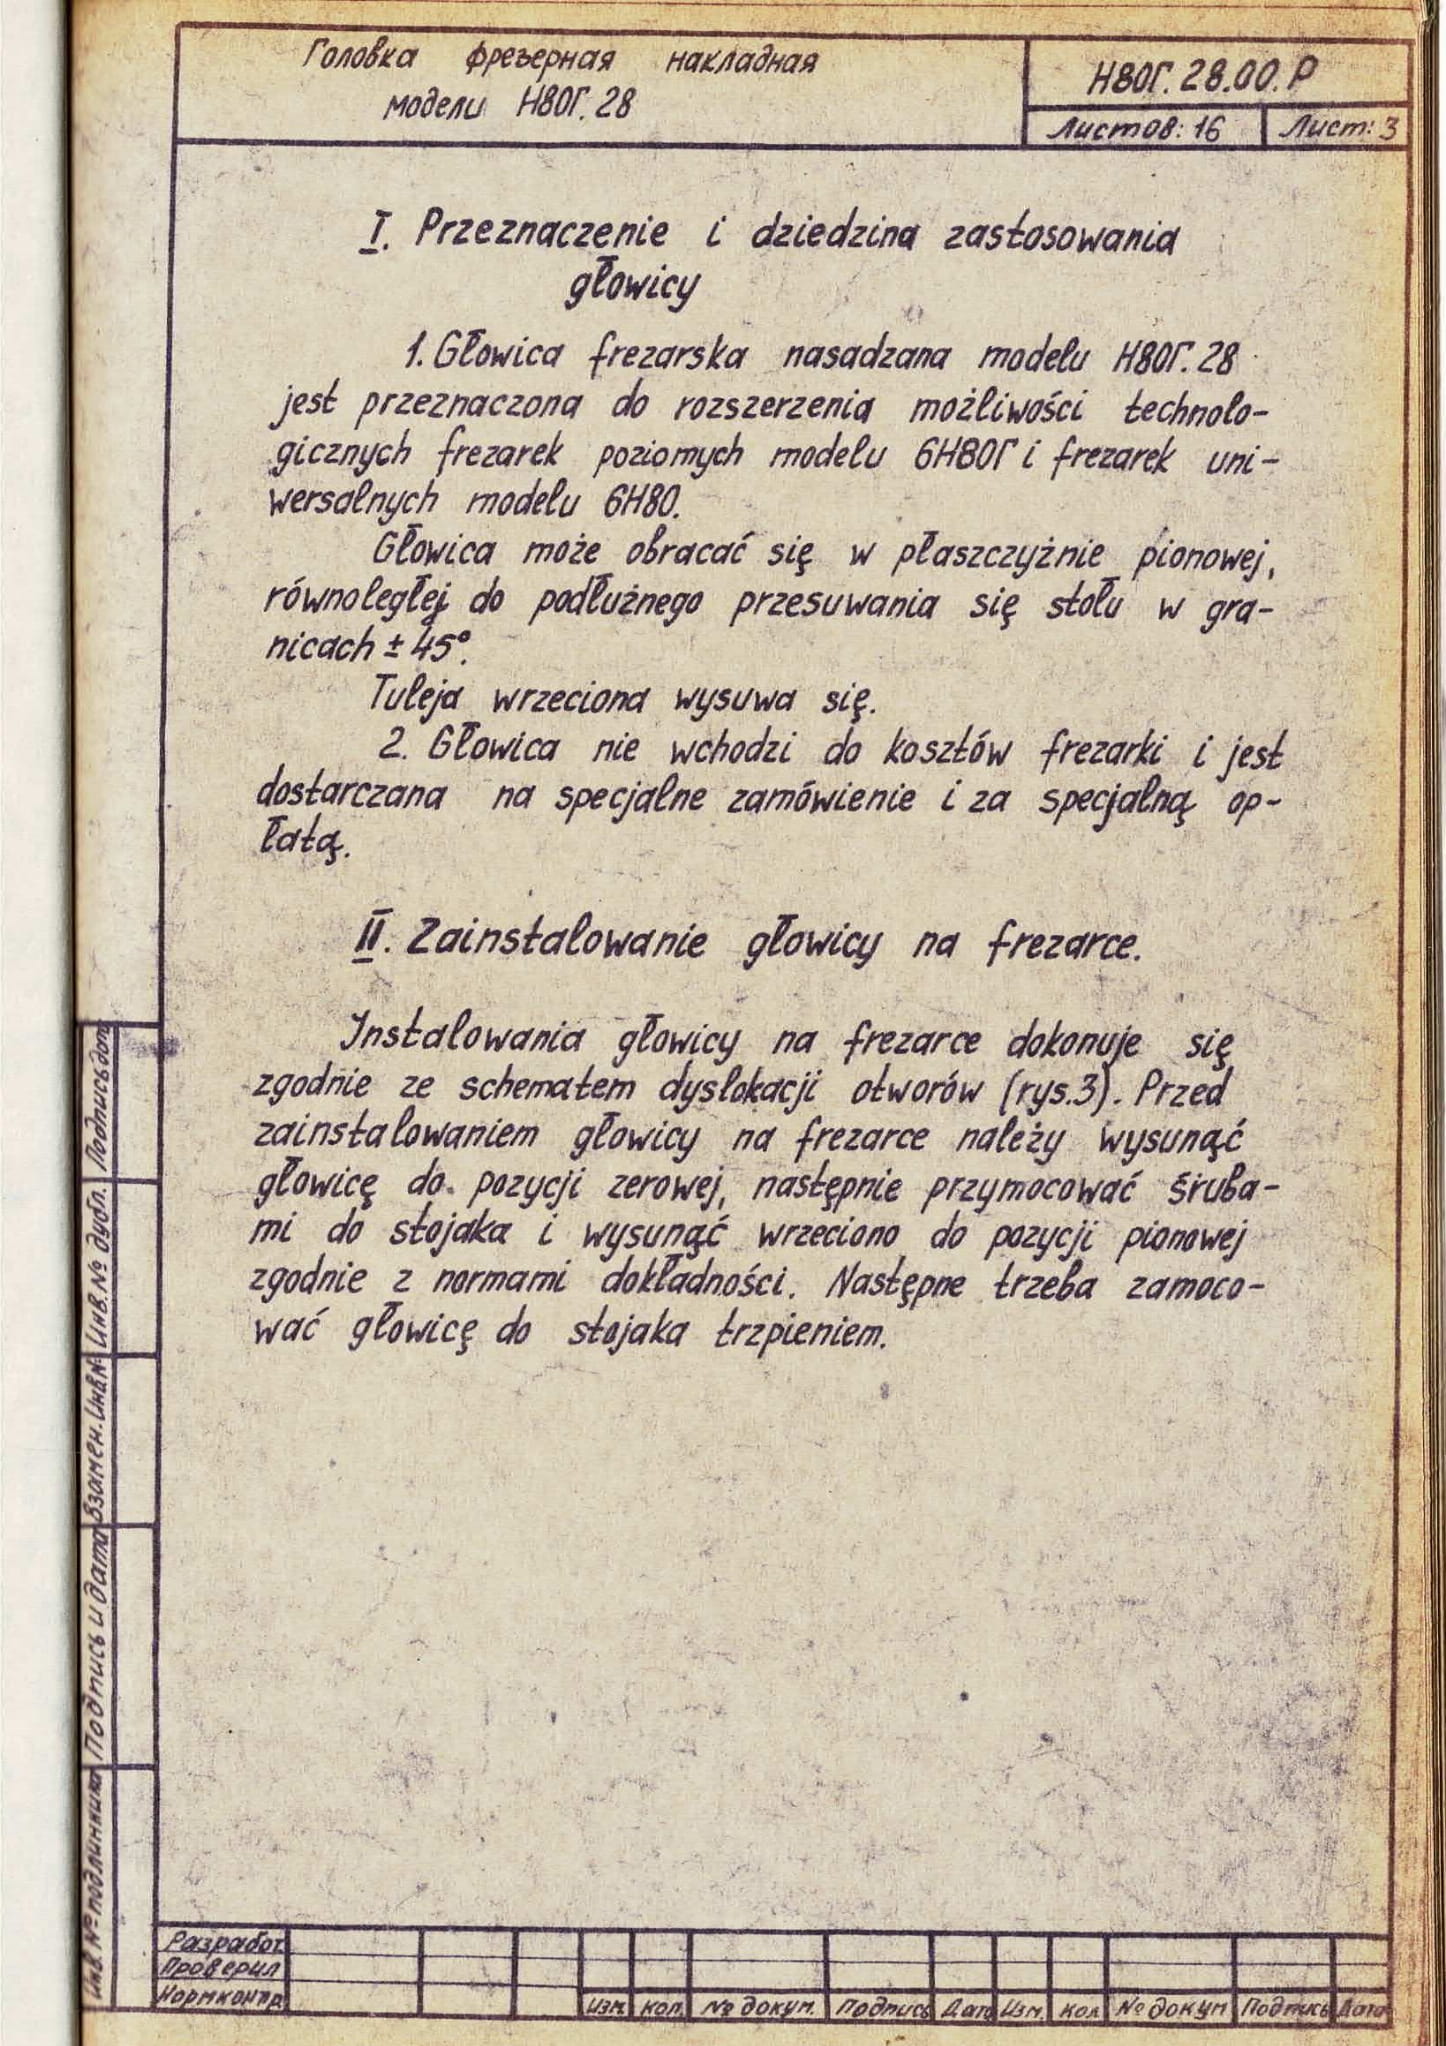 Головка фрезерная накладная
модели Н80Г.28
Н80Г.28.00.Р
Листов: 16
Лист: 3
I. Przeznaczenie i dziedzina zastosowania
głowicy
1. Głowica frezarska nasadzana modelu Н80Г.28
jest przeznaczona do rozszerzenia możliwości technolo-
gicznych frezarek poziomych modelu 6Н80Г i frezarek uni-
wersalnych modelu 6Н80.
Głowica może obracać się w płaszczyźnie pionowej,
równoległej do podłużnego przesuwania się stołu w gra-
nicach ± 45°.
Tuleja wrzeciona wysuwa się.
2. Głowica nie wchodzi do kosztów frezarki i jest
dostarczana na specjalne zamówienie i za specjalną op-
łatą.
II. Zainstalowanie głowicy na frezarce.
Instalowania głowicy na frezarce dokonuje się
zgodnie ze schematem dyslokacji otworów (rys.3). Przed
zainstalowaniem głowicy na frezarce należy wysunąć
głowicę do pozycji zerowej, następnie przymocować śruba-
mi do stojaka i wysunąć wrzeciono do pozycji pionowej
zgodnie z normami dokładności. Następne trzeba zamoco-
wać głowicę do stojaka trzpieniem.
Подпись дат
Инв. № дубл.
Взамен. Инв.№
Подпись и дата
Инв. № подлинника
Разработ.
Проверил
Нормконтр.
Изм. Кол. № докум. Подпись Дата Изм. Кол № докум Подпись Дата